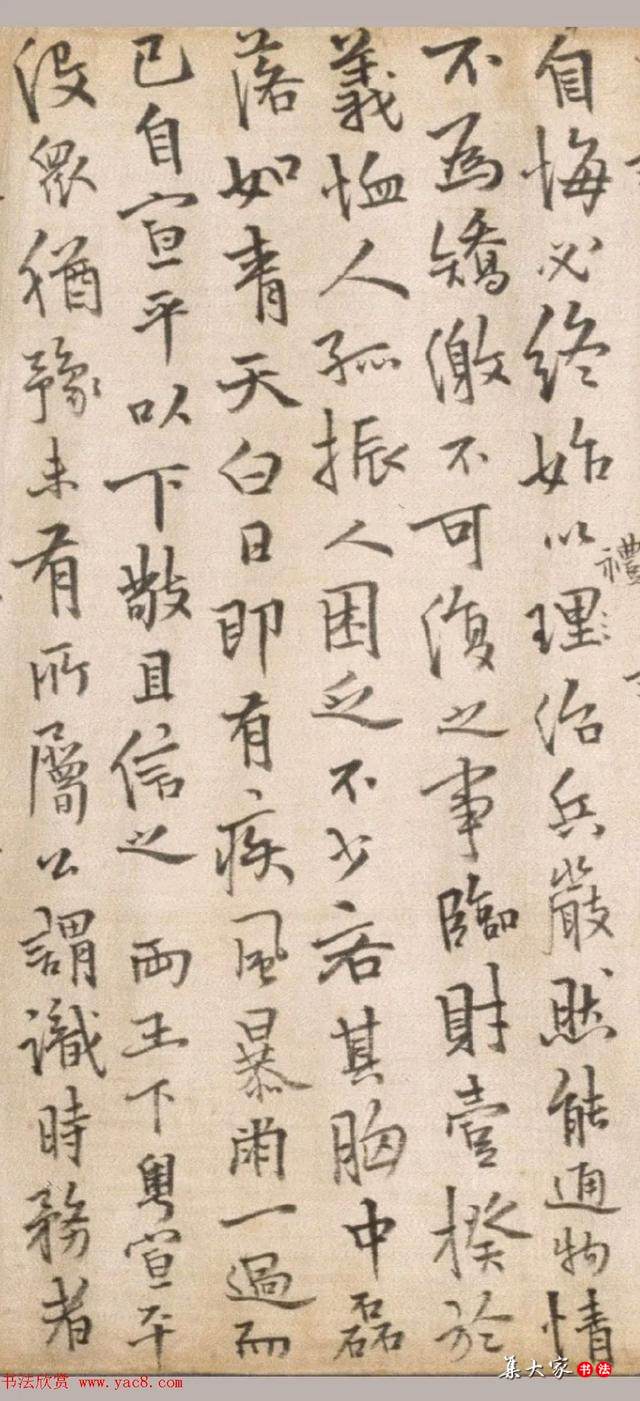 自悔必終始以理治兵嚴然能通物情
禮
不為矯激不可復之事臨財嘗揆於
義恤人孤振人困乏不少吝其胸中磊
落如青天白日即有疾風暴雨一過而
已自宣平以下敬且信之 两王下粤宣平
没眾猶豫未有所屬公謂識時務者
集大家书法
书法欣赏 www.yac8.com